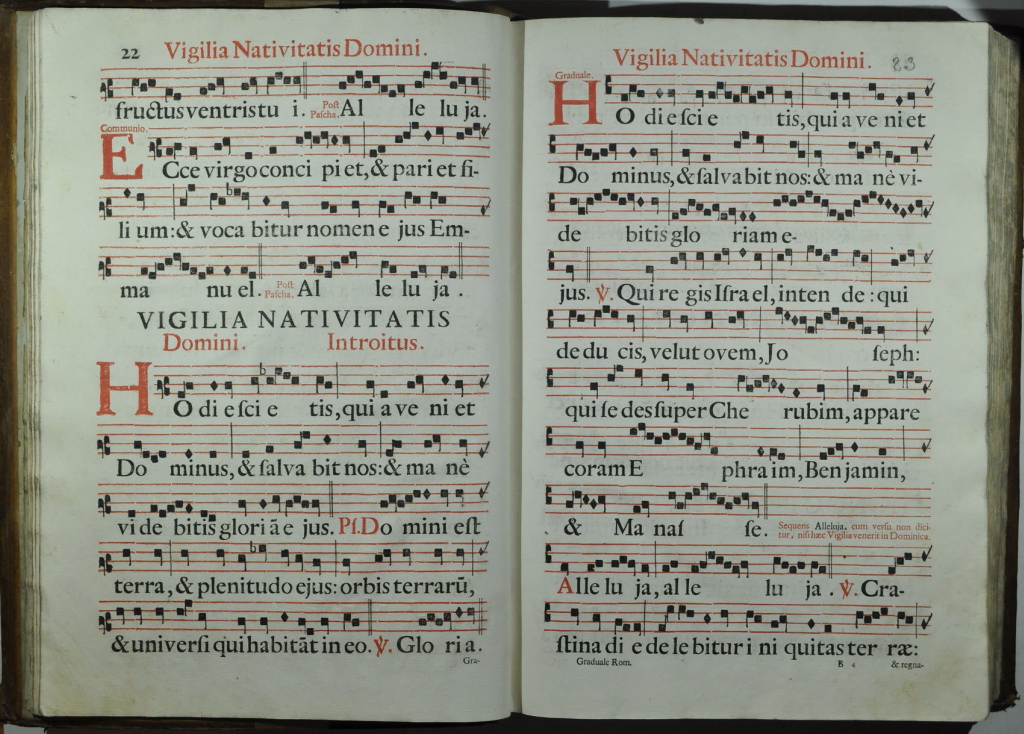 22 Vigilia Nativitatis Domini.
fructus ventris tu i. Post Pascha. Al le lu ja.
Communio.
ECce virgo conci pi et, & pari et fi-
li um: & voca bitur nomen e jus Em-
ma nu el. Post Pascha. Al le lu ja.
VIGILIA NATIVITATIS
Domini. Introitus.
HO di e sci e tis, qui a ve ni et
Do minus, & salva bit nos: & ma nè
vi de bitis glori ā e jus. Ps. Do mini est
terra, & plenitudo ejus: orbis terrarū,
& universi qui habitāt in eo. ℣. Glo ri a.
Gra-
Vigilia Nativitatis Domini. 23
Graduale.
HO di e sci e tis, qui a ve ni et
Do minus, & salvabit nos: & ma nè vi-
de bitis glo riam e-
jus. ℣. Qui re gis Isra el, inten de: qui
dedu cis, velut ovem, Jo seph:
qui se des super Che rubim, appare
coram E phraim, Ben jamin,
& Ma nas se. Sequens Alleluja, cum versu non dici-
tur, nisi hæc Vigilia venerit in Dominica.
Alle lu ja, al le lu ja. ℣. Cra-
stina di e de le bitur i ni quitas ter ræ:
Graduale Rom. B 4 & regna-